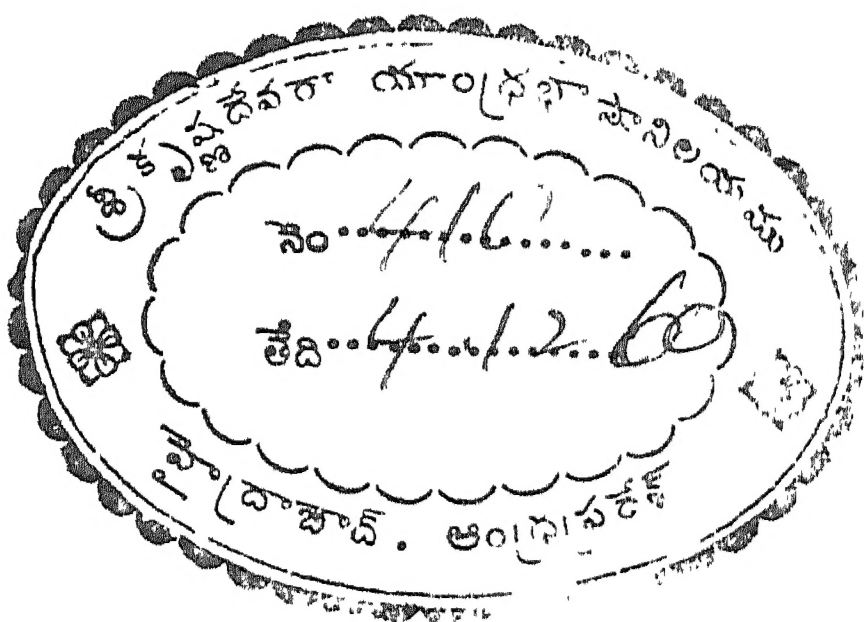 శ్రీ కృష్ణదేవరా యాంధ్రభా షానిలయము
నెం 416
తేది 4.12.60
హైద్రాబాద్. ఆంధ్రప్రదేశ్